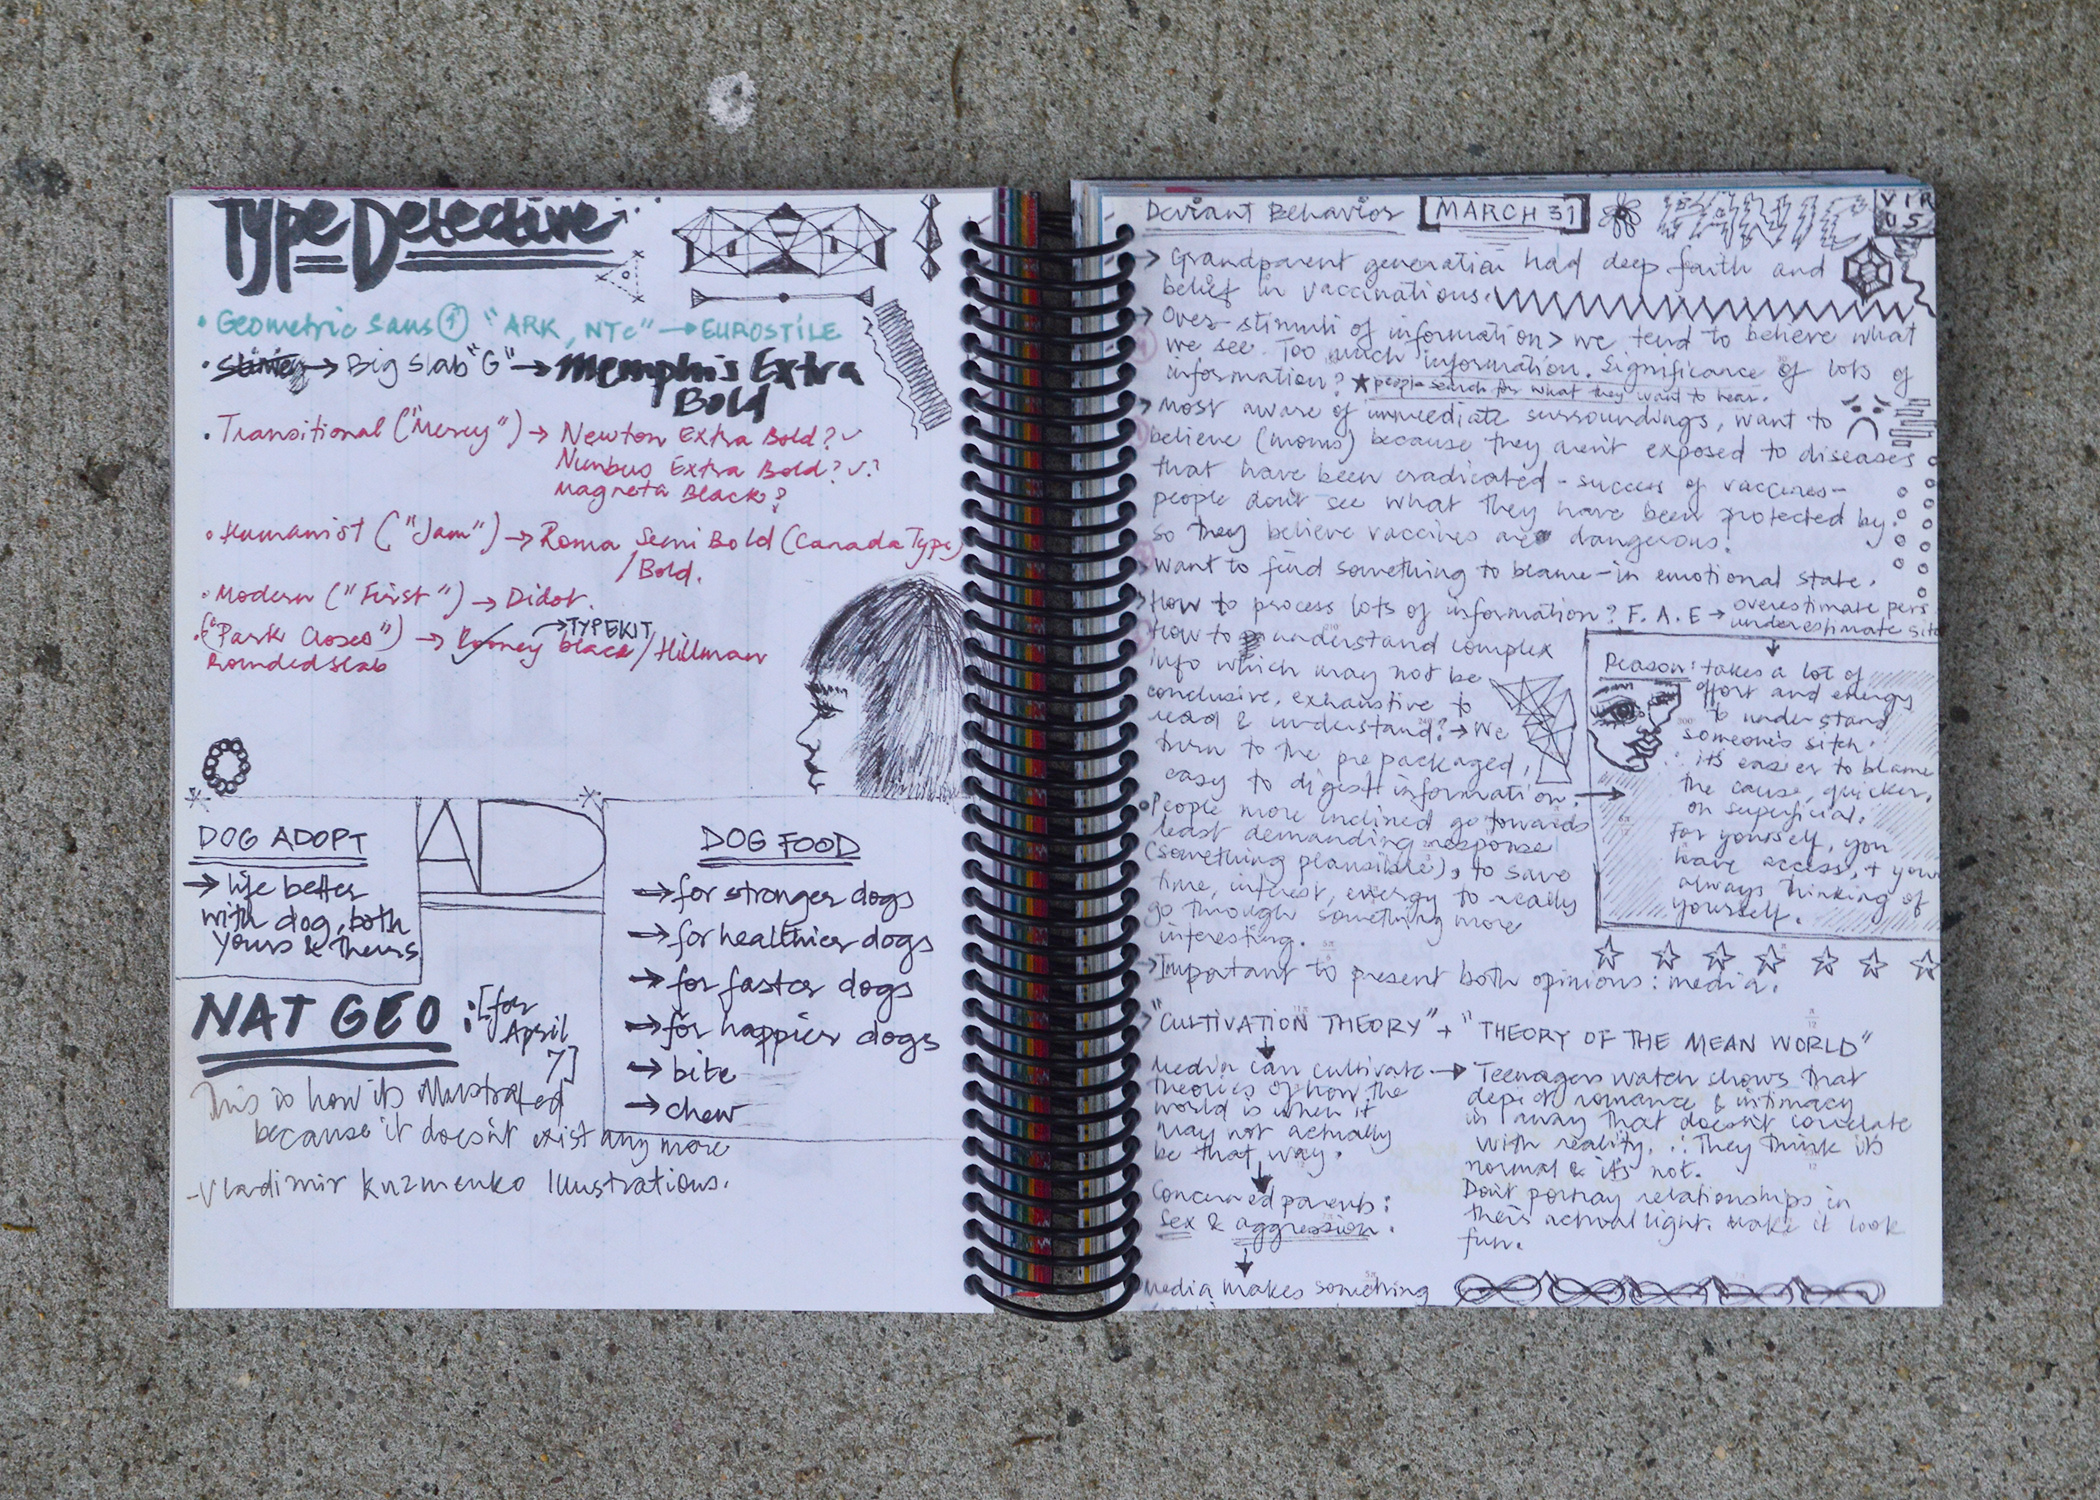 Type Detective
• Geometric Sans "ARK, NTC" → EUROSTILE
• → Big Slab "G" → Memphis Extra
Bold
• Transitional ("Mercy") → Newton Extra Bold? ✓
Nimbus Extra Bold? ✓?
Magneta Black?
• Humanist ("Jam") → Roma Semi Bold (Canada Type)
/Bold.
• Modern ("First") → Didot.
→ TYPEKIT
• ("Park Closes") → Rooney black / Hillman
Rounded Slab
DOG ADOPT
→ life better
with dog, both
yours & theirs
AD
DOG FOOD
→ for stronger dogs
→ for healthier dogs
→ for faster dogs
→ for happier dogs
→ bite
→ chew
NAT GEO : [for
April
7]
This is how its illustrated
because it doesn't exist any more
- Vladimir Kuzmenko Illustrations.
Deviant Behavior MARCH 31 PANIC VIR
US
→ Grandparent generation had deep faith and
belief in vaccinations.
→ Over-stimuli of information > we tend to believe what
we see. Too much information. Significance of lots of
information? ★ people search for what they want to hear.
→ Most aware of immediate surroundings, want to
believe (moms) because they aren't exposed to diseases
that have been eradicated - success of vaccines -
people don't see what they have been protected by.
so they believe vaccines are dangerous!
→ Want to find something to blame - in emotional state.
→ How to process lots of information? F.A.E → overestimate pers
underestimate sit
How to understand complex
info which may not be
conclusive, exhaustive to
read & understand? → We
turn to the prepackaged,
easy to digest information.
Reason: takes a lot of
effort and energy
to understand
someone's sitch.
it's easier to blame
the cause, quicker,
on superficial.
For yourself, you
have access, + your
always thinking of
yourself.
• People more inclined go towards
least demanding response
(something plausible), to save
time, interest, energy to really
go through something more
interesting.
→ Important to present both opinions: media.
→ "CULTIVATION THEORY" + "THEORY OF THE MEAN WORLD"
Media can cultivate →
theories of how the
world is when it
may not actually
be that way.
Concerned parents:
sex & aggression.
Media makes something
Teenagers watch shows that
depict romance & intimacy
in a way that doesn't correlate
with reality. ∴ They think it's
normal & it's not.
Don't portray relationships in
their actual light. Make it look
fun.